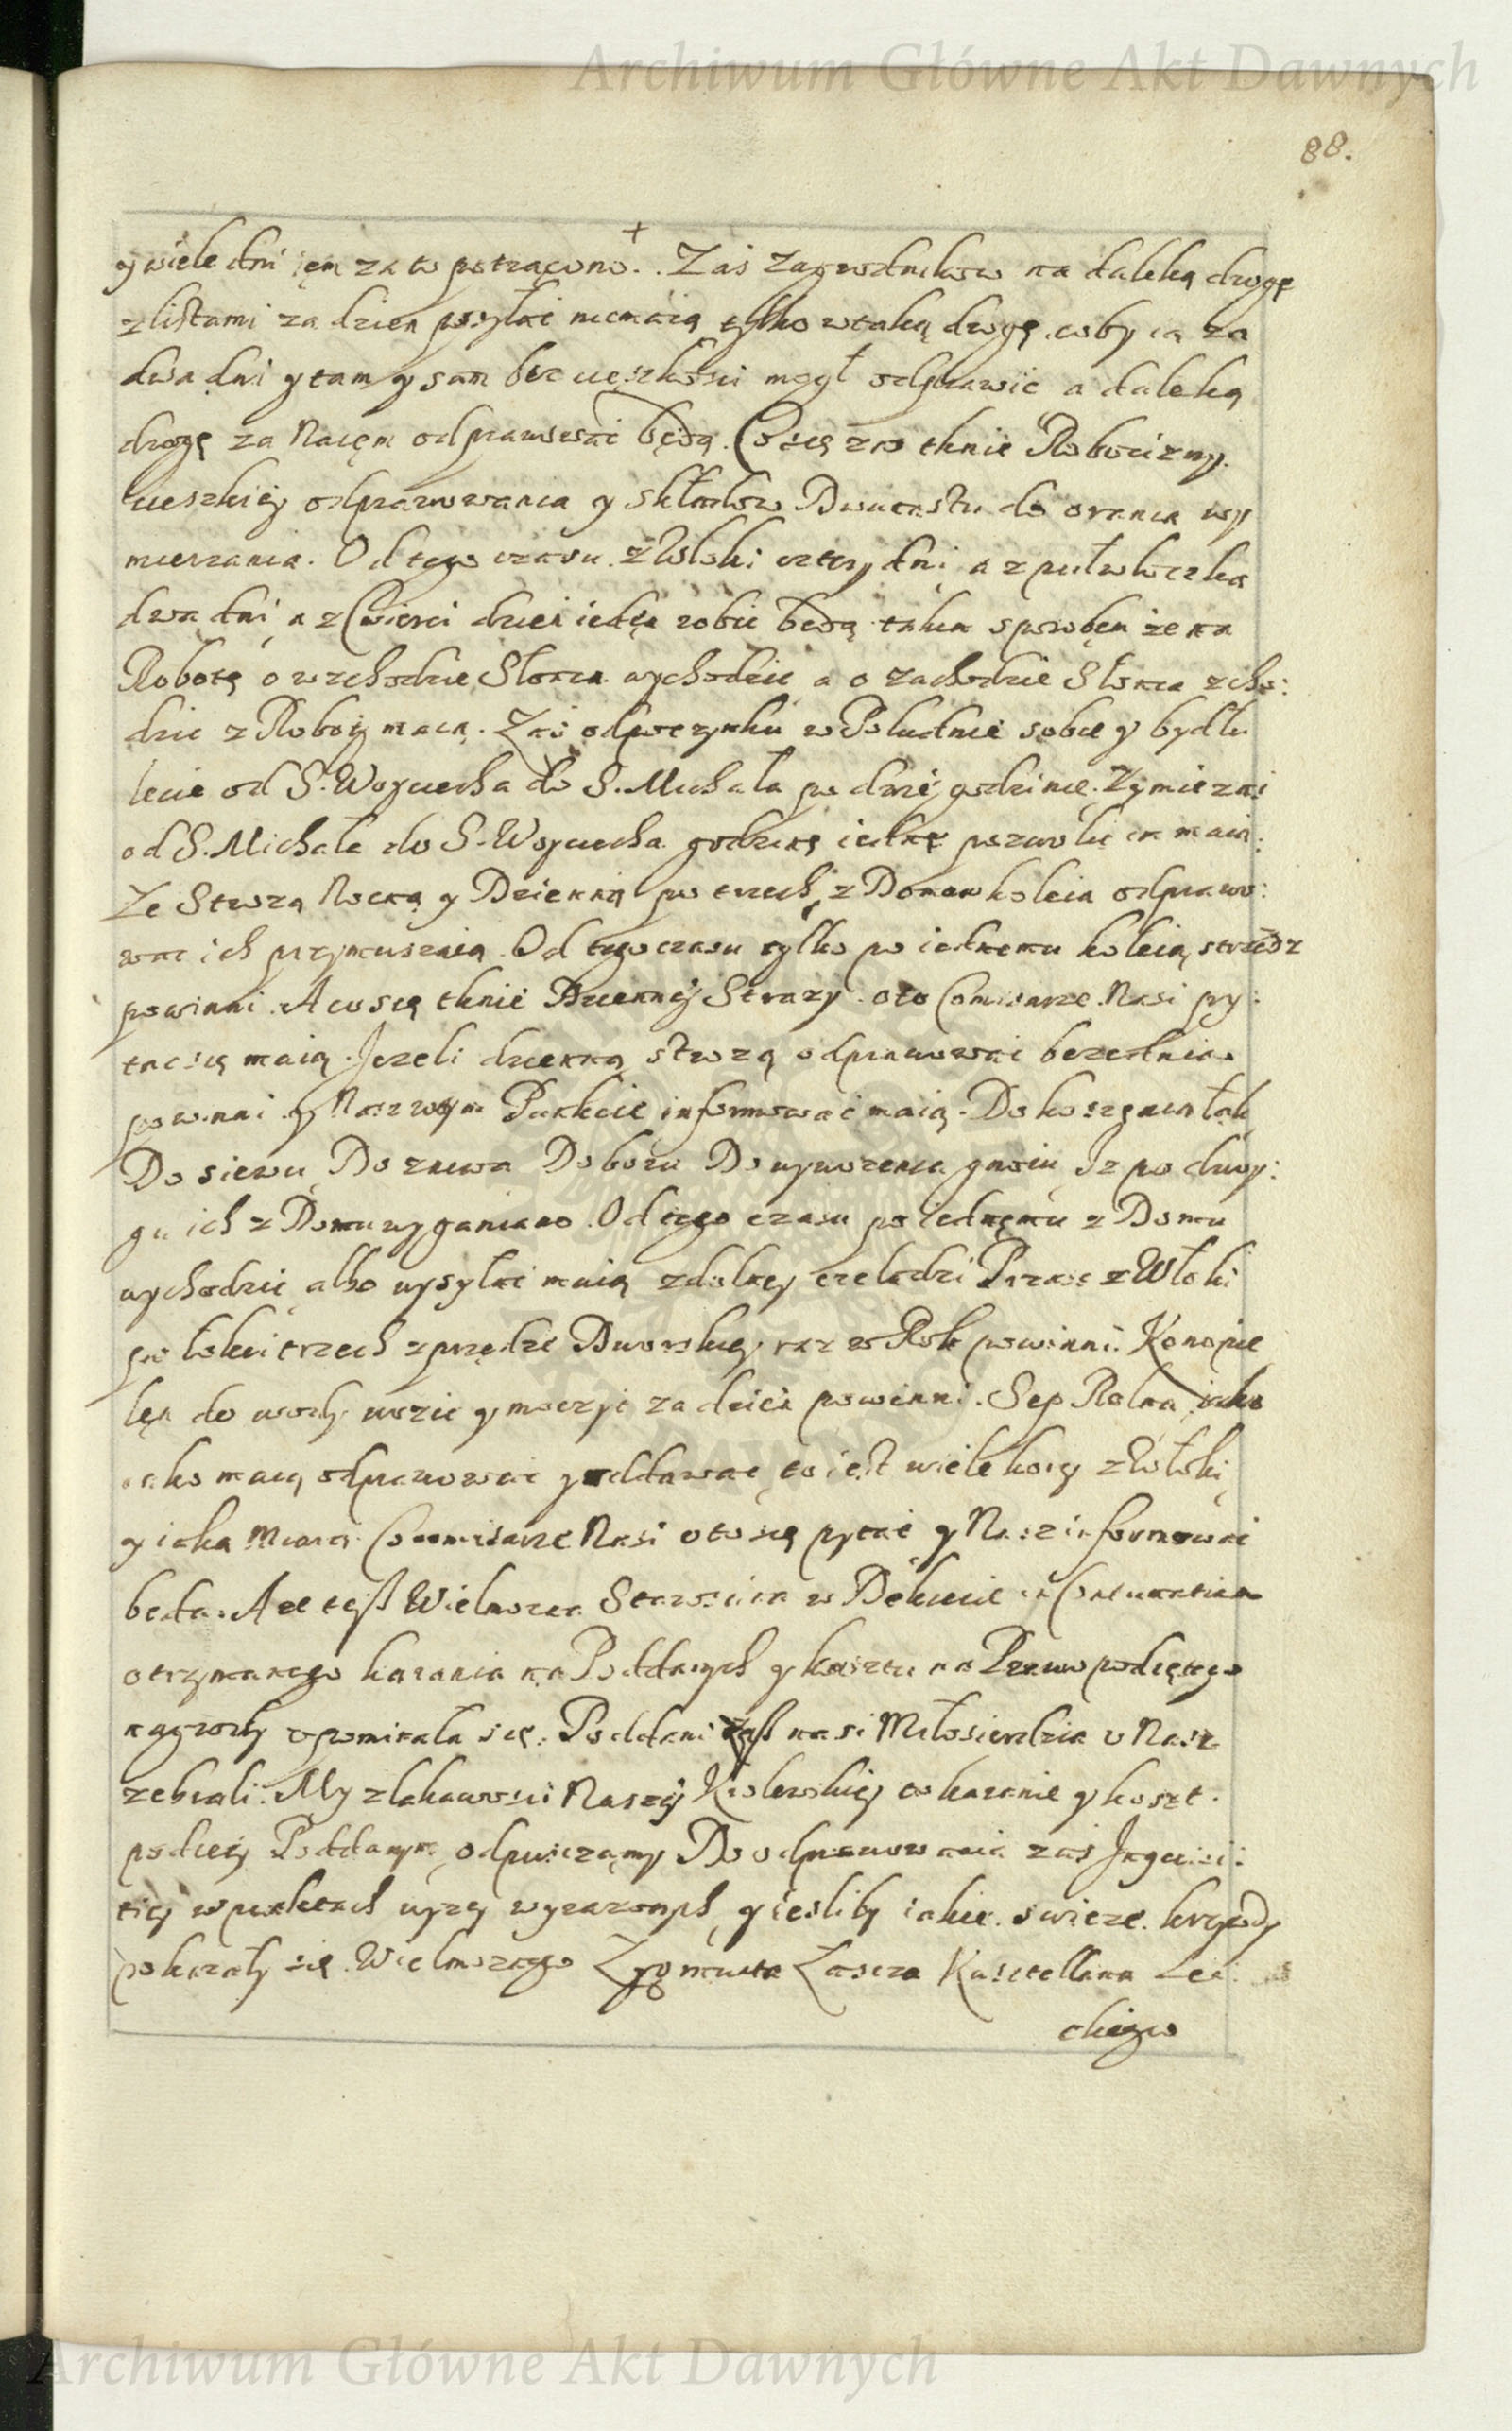 Archiwum Główne Akt Dawnych
88.
y wiele dni iem za to potrącono. Zaś Zagrodnikow na daleką drogę
z listami za dzien posyłać niemaią, tylko wtaką drogę, coby ią za
dwa dni y tam y sam bez cięszkości mogł odprawić a daleką
drogę za Naięm odprawować będą. Co się zas tknie Robocizny
cieszkiej odprawowania y składow Dwunastu do orania wy
mierzania. Od tego czasu z Włoki cztery dni, a z pułwłoczka
dwa dni, a z Cwierci dzien ieden robic będą takim sposobem że na
Robotę o wzchodzie Słonca wychodzic, a o zachodzie Słonca zcho:
dzic z Roboty maią. Zaś odpoczynku w Południe sobie y bydłu
lecie od S. Woyciecha do S. Michała po dwie godzinie. Zymie zaś
od S. Michała do S. Woyciecha godzinę iednę pozwolic im maią:
Ze Strożą Nocną y Dzienną po trzech z Domow koleią odprawo:
wać ich przymuszaią. Od tego czasu tylko po iednemu koleią strzedz
powinni. A co się tknie Dziennej Strazy. oto Comisarze Nasi py:
tac się maią. Jezeli dzienną strożą odprawować
powinni y Nasz w tym Punkcie informować maią. Do koszenia łąk
Do siewu, Do zniwa Do boru Do wywozenia gnoiu, Iz po dwoy:
gu ich z Domu wyganiano. Od tego czasu po iednemu z Domu
wychodzic, albo wysyłać maią zdolney czeladzi Prząsc z Włoki
po łokci trzech z przędze Dworskiej, raz w Rok powinni. Konopie
len do wody wozic y moczyc za dzień powinni. Sep Rolna jako
iako maią odprawować y oddawać, to iest wiele korcy z Włoki,
y iaka Miara. Commisarze Nasi oto się pytać y Nasz informować
będą. A ze teyß Wielmozna Starościna w Dekrecie in Contumatiam
otrzymanego karania na Poddanych y kosztu na Prawo podiętego
nagrody upominała się. Poddani zaß nasi Miłosierdzia u Nasz
zebrali. My z łaskawości Naszej Krolewskiej to karanie y koszt
podiety Poddanym odpuszczamy. Do odprawowania zaś Inquisi:
tiej w punktach wyzej wyrazonych, y iesliby iakie swieze krzywdy
pokazały się. Wielmoznego Zygmunta Łascza Kasztellana Lę:
ckiego
Archiwum Główne Akt Dawnych